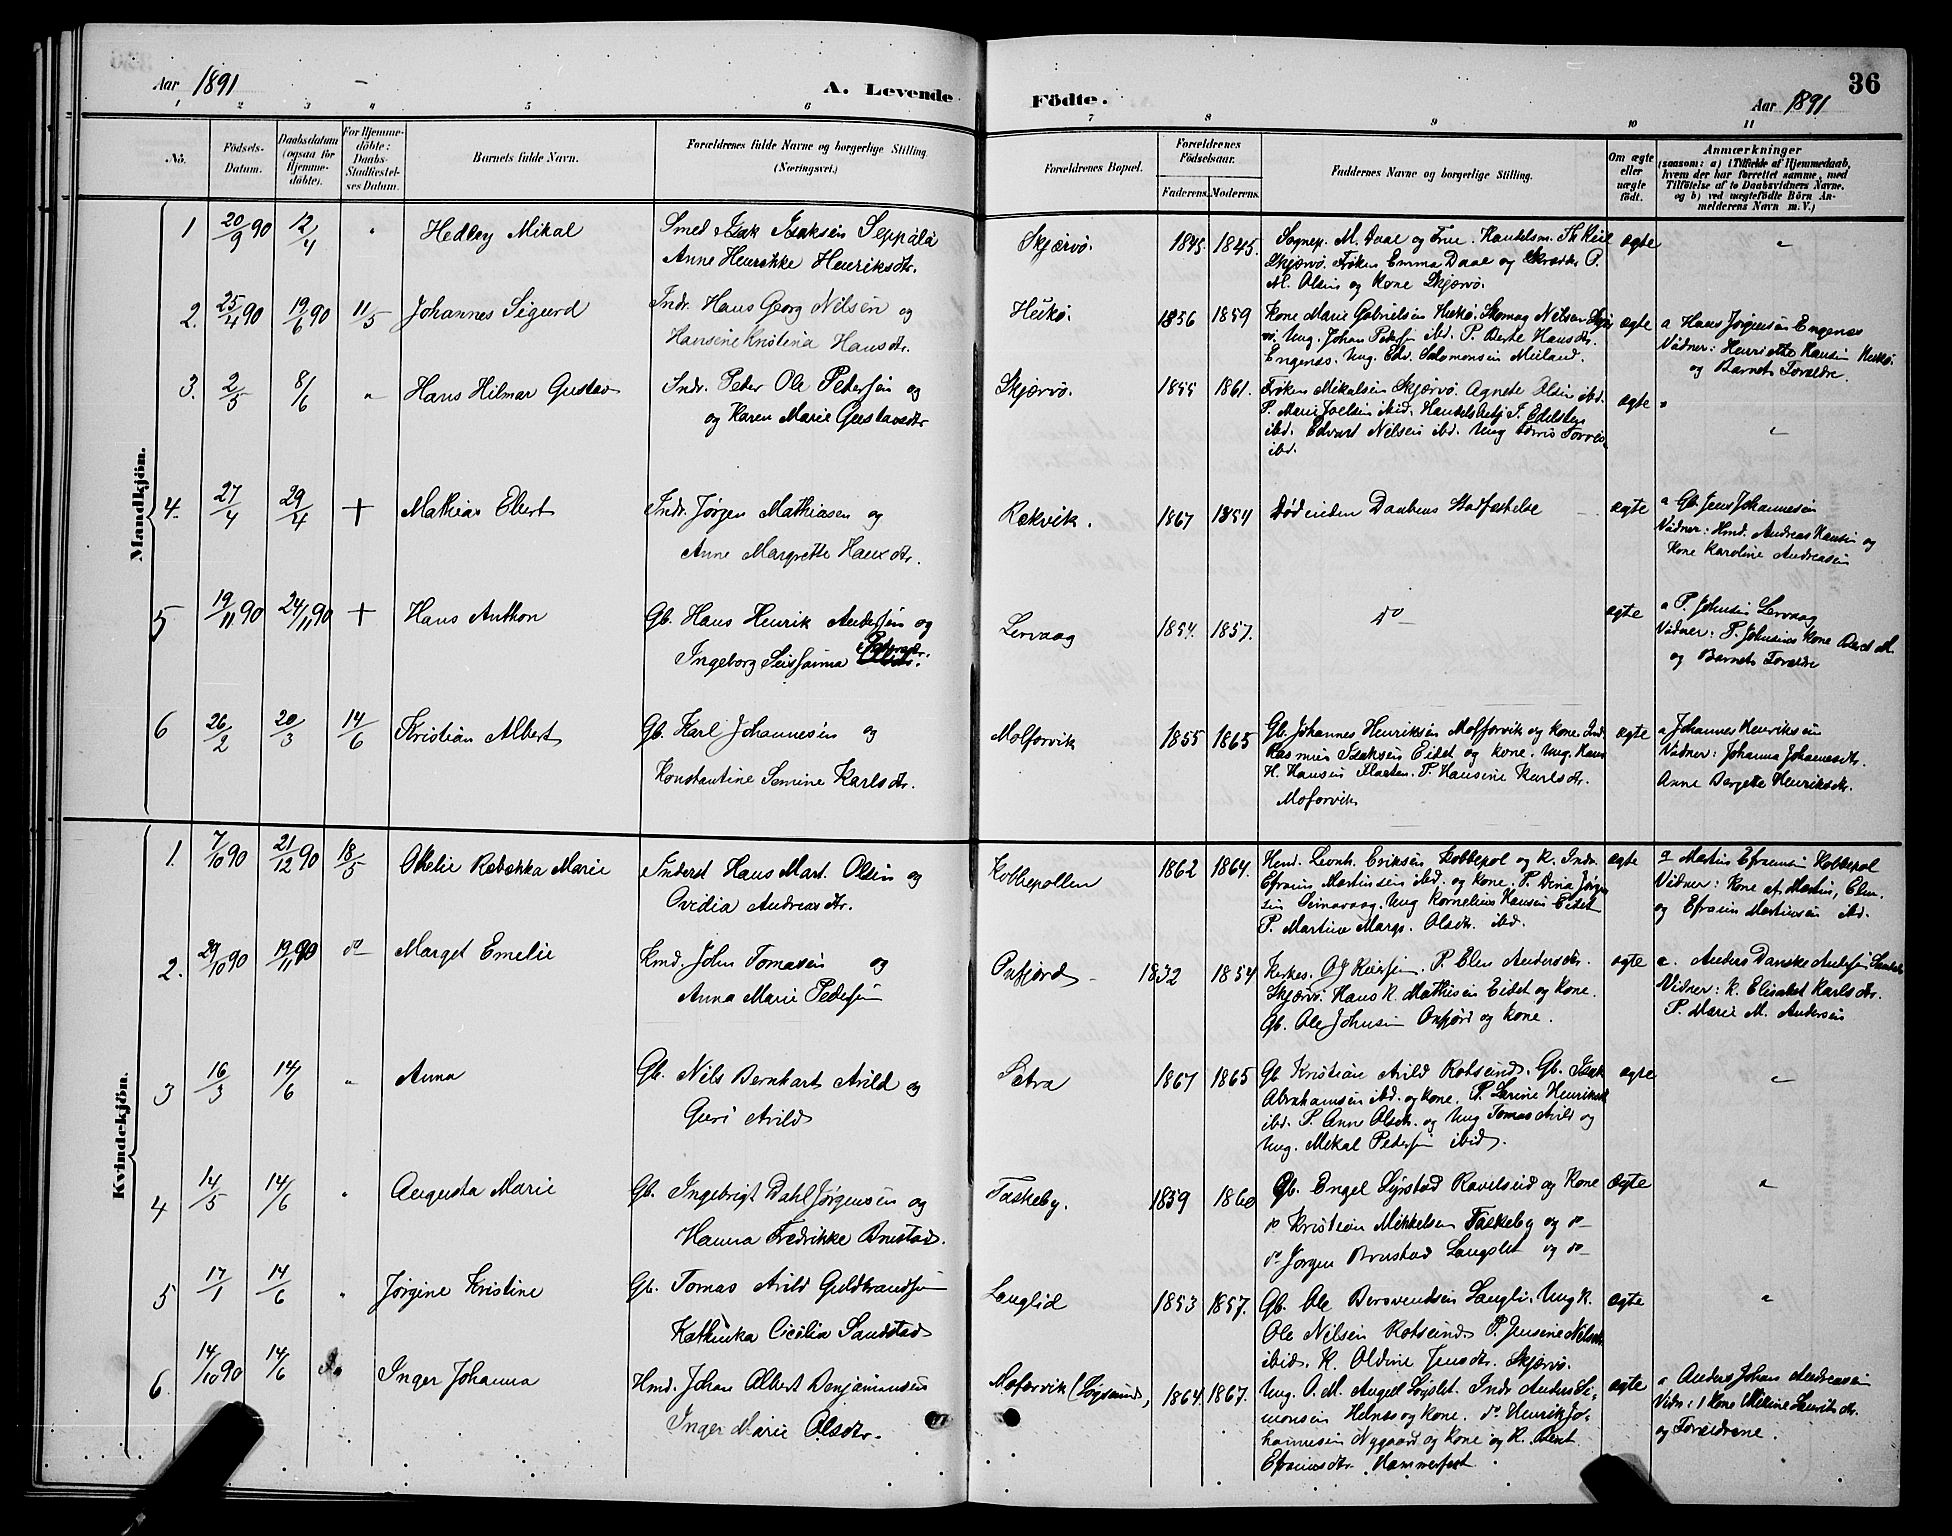 Aar 1891
A. Levende Födte.
Aar 1891
36
1 2 3 4 5 6 7 8 9 10 11
No.
Födsels-Datum.
Daabsdatum (ogsaa for Hjemme-döbte).
For Hjemme-döbte: Daabs-Stadfæstel-ses Datum.
Barnets fulde Navn.
Forældrenes fulde Navne og borgerlige Stilling. (Næringsvei.)
Forældrenes Bopæl.
Forældrenes Födselsaar.
Faderens. Moderens.
Faddernes Navne og borgerlige Stilling.
Om ægte eller uægte födt.
Anmærkninger (saasom: a) i Tilfælde af Hjemmedaab, hvem der har forrettet samme, med Tilföielse af to Daabsvidners Navne, og b) ved uægtefödte Börn An-melderens Navn m. V.)
Mandkjön.
1 20/9 90 12/4 " Hedley Mikal
Smed Isak Isaksen Seppälä
Anne Henrikke Henriksdtr.
Skjærvö. 1845 1845.
Sognep. M. Daae og Frue. Handelsm. Th Keil
Skjærvö. Frøken Emma Daae og P.
M. Olsen og Kone Skjærvö.
ægte "
2. 25/4 90 19/6 90 11/5 Johannes Sigurd
Indr. Hans Georg Nilsen og
Hansine Kristina Hansdtr.
1856 1859
Kone Marie Gabrielsen Nilsen
Ung. Johan Pedersen ibd. P. Berthe Hansdtr.
Engenes. Ung. Edv. Salomonsen Meiland.
ægte
a Hans Jörgensen Engenes
Vidner: Henriette Hansen
og Barnets Forældre.
3. 2/5 8/6 " Hans Hilmar Gustav
Indr. Peter Ole Pedersen og
og Karen Marie Gustavsdtr
Skjærvö. 1855 1861.
Frøken Mikalsen Skjærvö. Agnete Olsen ibd.
P. Marie Joelsen ibid. I. Edelsten
ibd. Edvart Nilsen ibd. Ung
ibd.
ægte "
4. 27/4 29/4 + Mathias Ebert
Indr. Jørgen Mathiasen og
Anne Margrethe Hansdtr.
Rækvik. 1867 1854
Död inden Daabens Stadfæstelse
ægte
a Gb. Jens Johannesen
Vidner: Hmd. Andreas Hansen og
Kone Karoline Andreasen
5 19/11 90 24/11 90 + Hans Anthon
Gb. Hans Henrik Andersen og
Ingeborg Susanna
Lervaag 1854. 1857.
do
ægte
a P. Johnsen Lervaag
Vidner: P. Johnsens Kone
og Barnets Forældre
6 26/2 20/3 14/6 Kristian Albert
Gb. Karl Johannesen og
Konstantine Semine Karlsdtr.
Molforvik 1855 1865
Gb. Johannes Henriksen Molforvik og kone. Ind
Rasmus Isaksen Eidet og kone. Ung. Hans
H. Hansen Flaaten. P. Hansine Karlsdtr.
Moforvik
ægte
a Johannes Henriksen
Vidner: Johanna Johannesdtr.
Anne Bergette Henriksdtr.
Kvindekjön.
1. 7/10 90 21/12 90 18/5 Otelie Rebekka Marie
Inderst Hans Mart. Olsen og
Ovidia Andreasdtr.
Kobbepollen 1862 1864.
Hmd. Leonh. Eriksen Kobbepol og K. Indr.
Efraim Martinsen ibd. og kone. P. Dina Jörgen
sen Ung Kornelius Hansen Eidet
P. Martine Margr. Olsdtr. ibd.
ægte
a Martin Efraimsen Kobbepol
Vidner: Kone af Martin, Elen.
og Efraim Martinsen ibd.
2. 29/10 90 19/11 90 do Marget Emelie
Hmd. John Tomasen og
Anna Marie Pedersen
Oxfjord 1832 1854
Kirkes. P. Elen Andersdtr.
Skjærvö. Hans K. Mathisen Eidet og kone.
Gb. Ole Johnsen Oxfjord og kone.
ægte
a. Anders Danske Andersen
Vidner: K. Elisabet Karlsdtr.
P. Marie M. Andersen
3 16/3 14/6 " Anna
Gb. Nils Bernhart Arild og
Guri Arild
Sætra 1867 1865
Gb Kristian Arild Rotsund. Gb. Isak
Abrahamsen ibd. og kone. P. Larine Henriksdtr
ibd. P. Anne Olsdtr. og Ung Tomas Arild og
Ung. Mikal Pedersen ibid.
ægte "
4 14/5 14/6 " Augusta Marie
Gb. Ingebrigt Dahl Jørgensen og
Hanna Fredrikke Brustad.
Taskeby. 1859 1860
Gb. Engel Ravelseid og Kone
do Kristian Mikkelsen Taskeby og do
do Jørgen Brustad Langslet og do
ægte "
5 17/1 14/6 " Jørgine Kristine
Gb. Tomas Arild Guldbrandsen
Kathinka Cicilia Sandstad
Langlid 1853 1857.
Gb. Ole Bersvendsen Langli. Ung K.
Ole Nilsen Rotsund. P. Jensine Nilsdtr
ibid. K. Oldine Jensdtr. Skjærvö.
ægte "
6. 14/10 90 14/6 Inger Johanna
Hmd. Johan Albert Benjaminsen
Inger Marie Olsdtr.
Moforvik 1864 1867.
Ung. O. M. Angel Indr Anders Si-
monsen Helnes og kone. do Henrik Jo-
hannesen Nygaard og Kone og K. Berit
Efraimsdtr. Hammerfest
ægte
a Anders Johan Andreasen
Vidn: 1 Kone Meline Lauritsdtr.
og Forældrene.